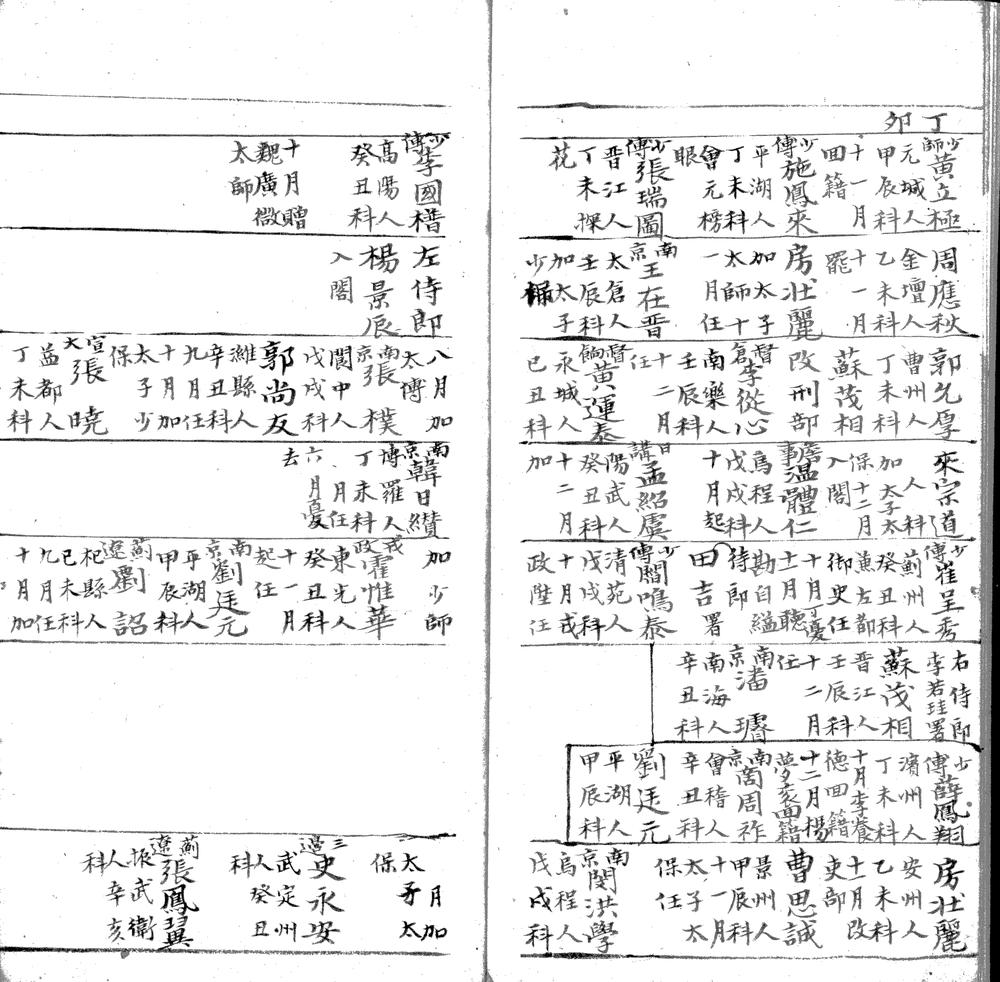 丁卯
少師黃立極
元城人
甲辰科
十一月
回籍
少傅施鳳來
平湖人
丁未科
會元榜
眼
少傅張瑞圖
晉江人
丁未探
花
周應秋
金壇人
乙未科
十一月
罷
房壯麗
加太子
太師十
一月任
南京王在晉
太倉人
壬辰科
加太子
少保
郭允厚
曹州人
丁未科
蘇茂相
改刑部
督倉李從心
南樂人
壬辰科
十二月
任
督餉黃運泰
永城人
己丑科
來宗道
人科
加太子太
保十二月
入閣
詹事溫體仁
烏程人
戊戌科
十月起
日講孟紹虞
陽武人
癸丑科
十二月
加
少傅崔呈秀
薊州人
癸丑科
兼左都
御史任
十月丁憂
十一月聽
勘自縊
侍郎
田吉署
少傅閻鳴泰
清苑人
戊戌科
十月戎
政陞任
右侍郎
李若珪署
蘇茂相
晉江人
壬辰科
十二月
任
南京潘
南海人
辛丑科
少傅薛鳳翔
濱州人
丁未科
十月李養
德回籍
十二月楊
夢袞回籍
南京商周祚
會稽人
辛丑科
劉廷元
平湖人
甲辰科
房壯麗
安州人
乙未科
十一月改
吏部
曹思誠
景州人
甲辰科
十一月
太子太
保任
南京閔洪學
烏程人
戊戌科
少傅李國𣚴
高陽人
癸丑科
十月贈
魏廣微
太師
左侍郎
楊景辰
入閣
八月加
太傅
南京張樸
閿中人
戊戌科
郭尚友
濰縣人
辛丑科
九月任
十月加
太子少
保
宣大張曉
益都人
丁未科
南京韓日纘
博羅人
丁未科
月任
六月憂
去
加少師
戎政霍惟華
東光人
癸丑科
十一月
起任
南京劉廷元
平湖人
甲辰科
薊遼劉詔
杞縣人
己未科
九月任
十月加
月加
太子太
保
三邊史永安
武定州
人癸丑
科
薊遼張鳳翼
振武衛
人辛亥
科